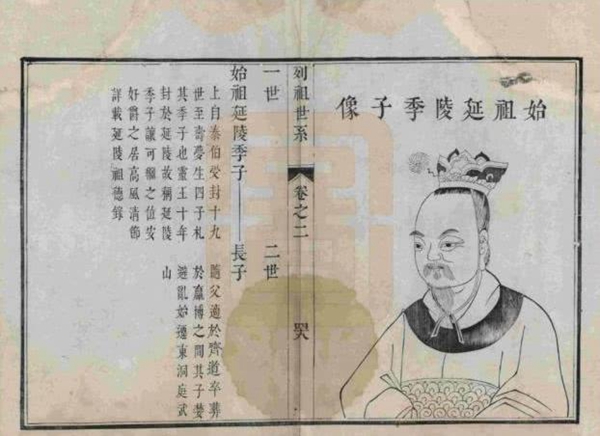 始祖延陵季子像
列祖世系
卷之二
一世
二世
始祖延陵季子——長子
上自泰伯受封十九
世至壽夢生四子札
其季子也靈王十年
封於延陵故稱延陵
季子讓可繼之位安
好爵之居高風清節
詳載延陵祖德錄
隨父適於齊道卒葬
於嬴博之間其子婪
避亂始遷東洞庭武
山